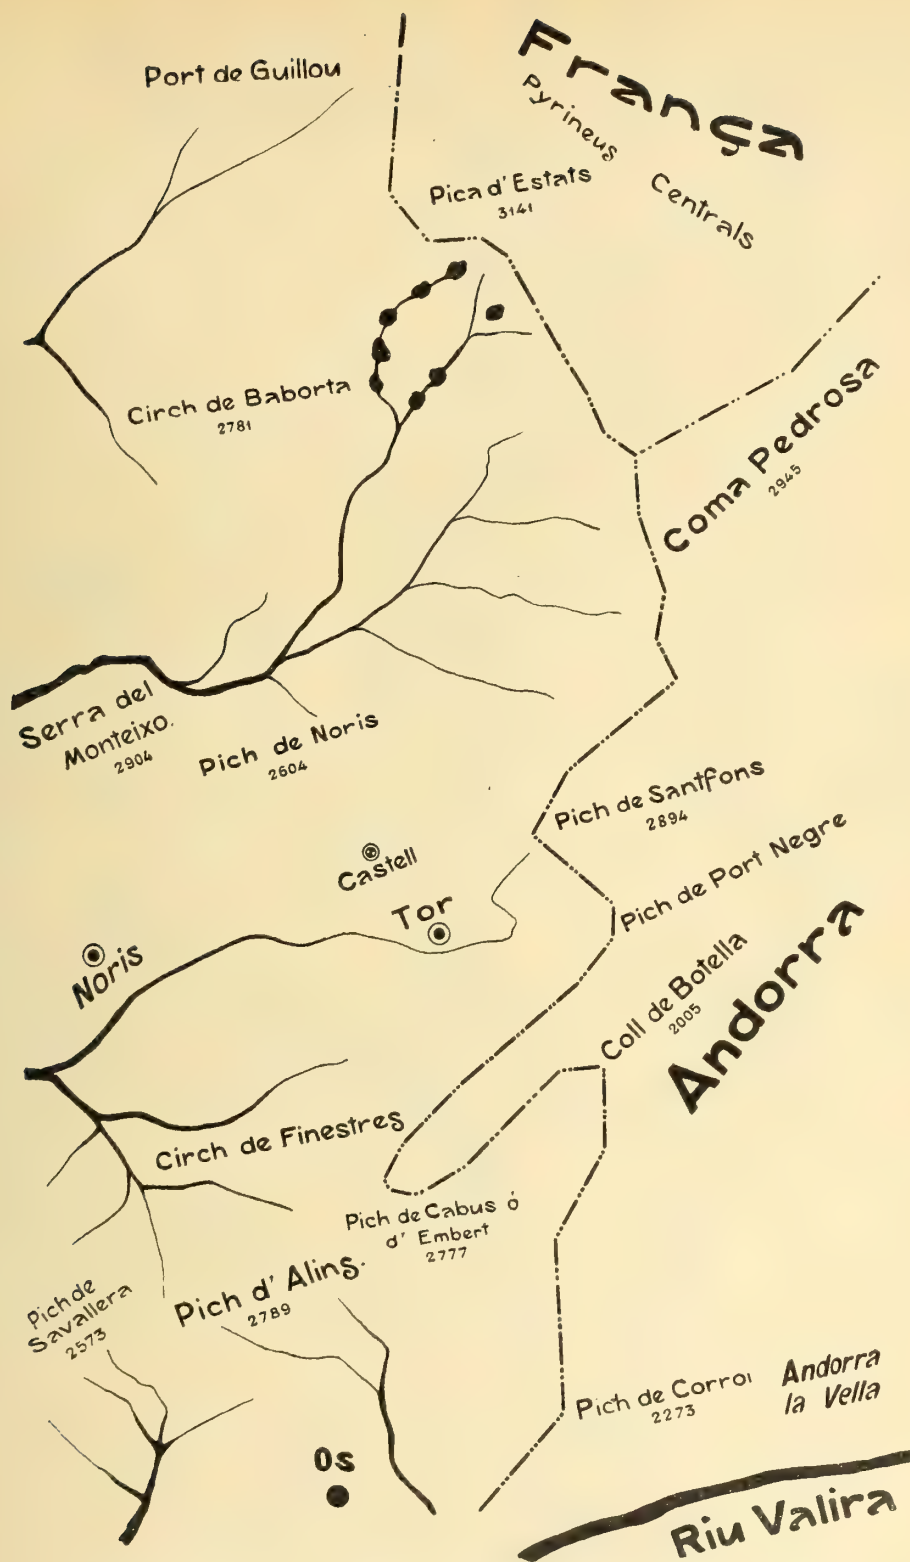 França
Port de Guillou
Pyrineus
Centrals
Pica d'Estats
3141
Circh de Baborta
2781
Coma Pedrosa
2945
Serra del
Monteixo.
2904
Pich de Noris
2604
Pich de Santfons
2894
Castell
Pich de Port Negre
Tor
Noris
Coll de Botella
2005
Andorra
Circh de Finestres
Pich de Cabus ó
d' Embert
2777
Pich d' Alins.
2789
Pich de
Savallera
2573
Pich de Corroi
2273
Andorra
la Vella
Os
Riu Valira